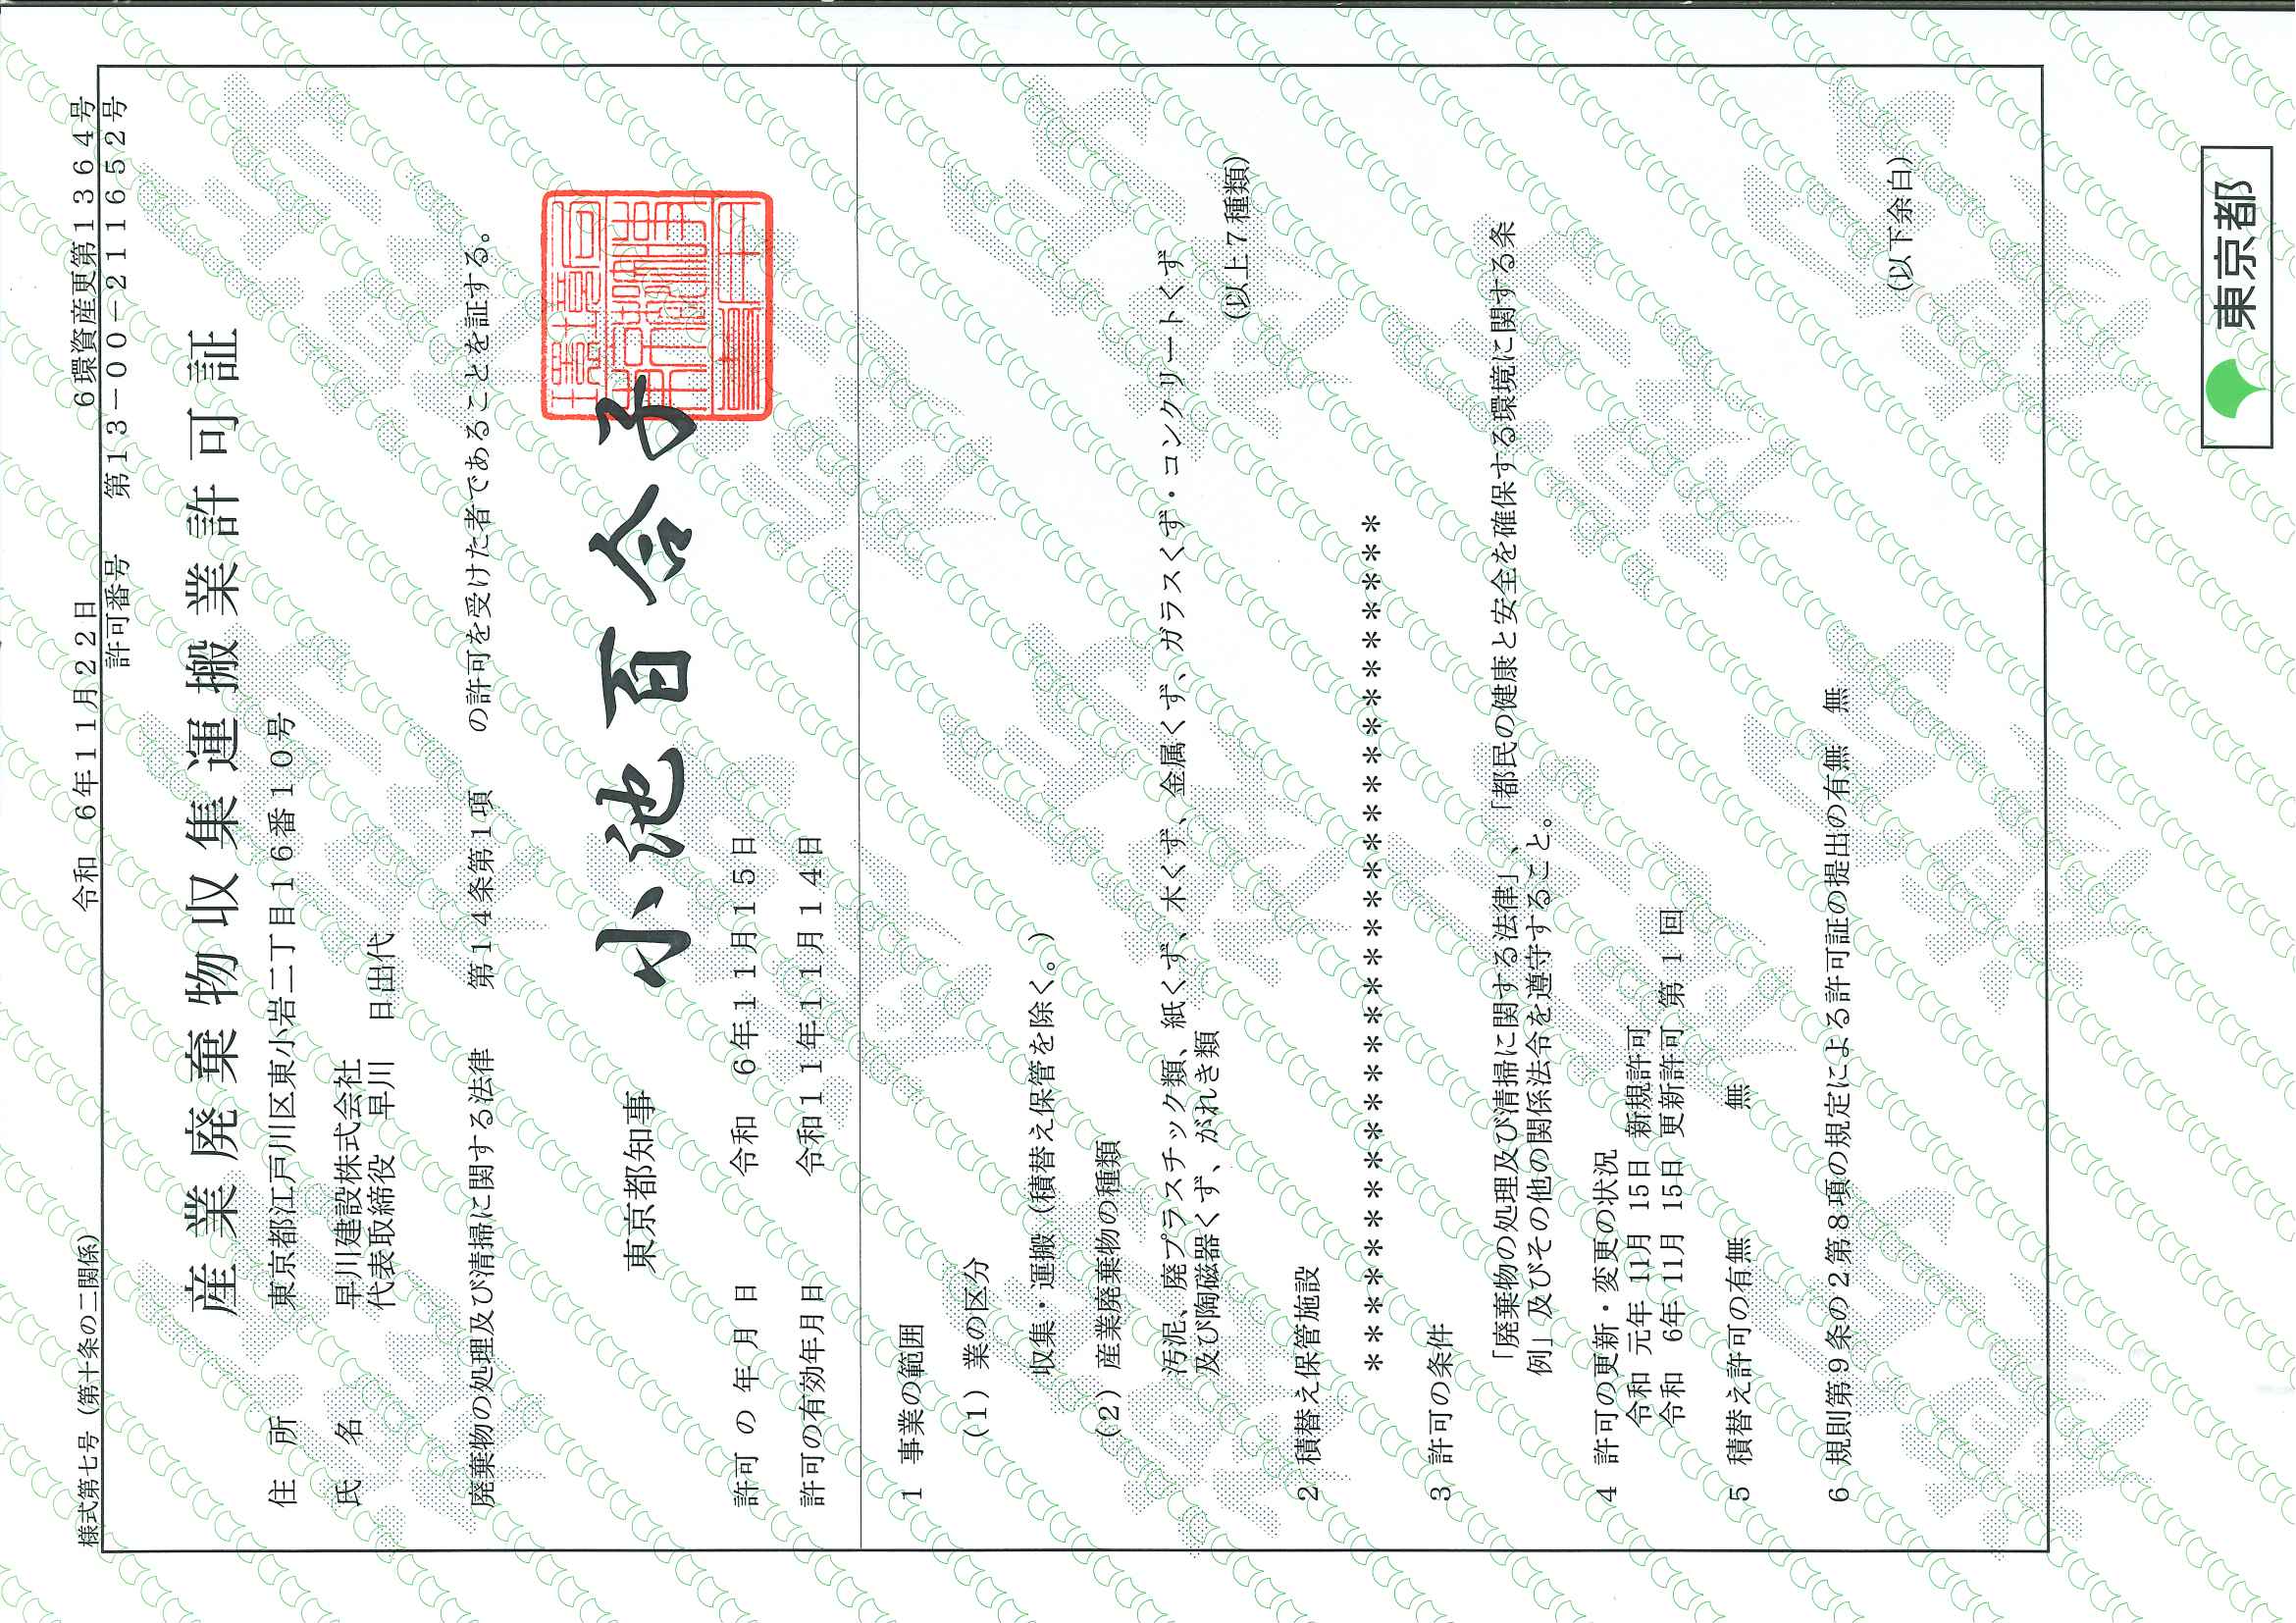 様式第七号（第十条の二関係）
令和　６年１１月２２日　６環資産更第１３６４号
許可番号　第１３－００－２１１６５２号
産業廃棄物収集運搬業許可証
住　所　東京都江戸川区東小岩二丁目１６番１０号
氏　名　早川建設株式会社
代表取締役　早川　日出代
廃棄物の処理及び清掃に関する法律　第１４条第１項　の許可を受けた者であることを証する。
東京都知事　小池百合子
許可の年月日　令和　６年１１月１５日
許可の有効年月日　令和１１年１１月１４日
１　事業の範囲
（１）業の区分
収集・運搬（積替え保管を除く。）
（２）産業廃棄物の種類
汚泥、廃プラスチック類、紙くず、木くず、金属くず、ガラスくず・コンクリートくず
及び陶磁器くず、がれき類
（以上７種類）
２　積替え保管施設
＊＊＊＊＊＊＊＊＊＊＊＊＊＊＊＊＊＊＊＊＊＊＊＊＊＊＊＊＊＊
３　許可の条件
「廃棄物の処理及び清掃に関する法律」、「都民の健康と安全を確保する環境に関する条
例」及びその他の関係法令を遵守すること。
４　許可の更新・変更の状況
令和 元年 11月 15日　新規許可
令和　6年 11月 15日　更新許可　第１回
５　積替え許可の有無　無
６　規則第９条の２第８項の規定による許可証の提出の有無　無
（以下余白）
東京都